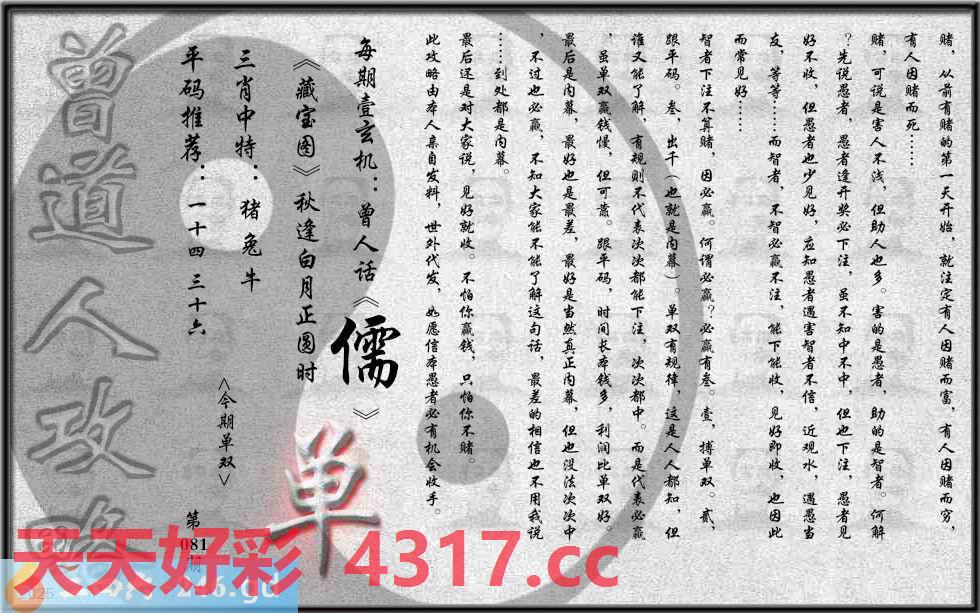 赌，从前有赌的第一天开始，就注定有人因赌而富，有人因赌而穷，
有人因赌而死……
赌，可说是害人不浅，但助人也多。害的是愚者，助的是智者。何解
？先说愚者，愚者逢开奖必下注，虽不知中不中，但也下注，愚者见
好不收，但愚者也少见好，应知愚者遇害智者不信，近观水，遇愚当
友，等等……而智者，不智必赢不注，能下能收，见好即收，也因此
而常见好……
智者下注不算赌，因必赢。何谓必赢？必赢有叁。壹，搏单双。贰，
跟平码。叁，出千（也就是内幕）。单双有规律，这是人人都知，但
谁又能了解，有规则不代表次次都能下注，次次都中。而是代表必赢
，虽单双赢钱慢，但可靠。跟平码，时间长本钱多，利润比单双好。
最后是内幕，最好也是最差，最好是当然真正内幕，但也没法次次中
，不过也必赢，不知大家能不能了解这句话，最差的相信也不用我说
……到处都是内幕。
最后还是对大家说，见好就收。不怕你赢钱，只怕你不赌。
此攻略由本人亲自发料，世外代发，如愿信本愚者必有机会收手。
每期壹玄机：曾人话《儒》
《藏宝图》秋逢白月正圆时
三肖中特：猪兔牛
平码推荐：一十四 三十六
<今期单双>
单
第
081
期
曾道人攻略
天天好彩 4317.cc
2025
246.gd